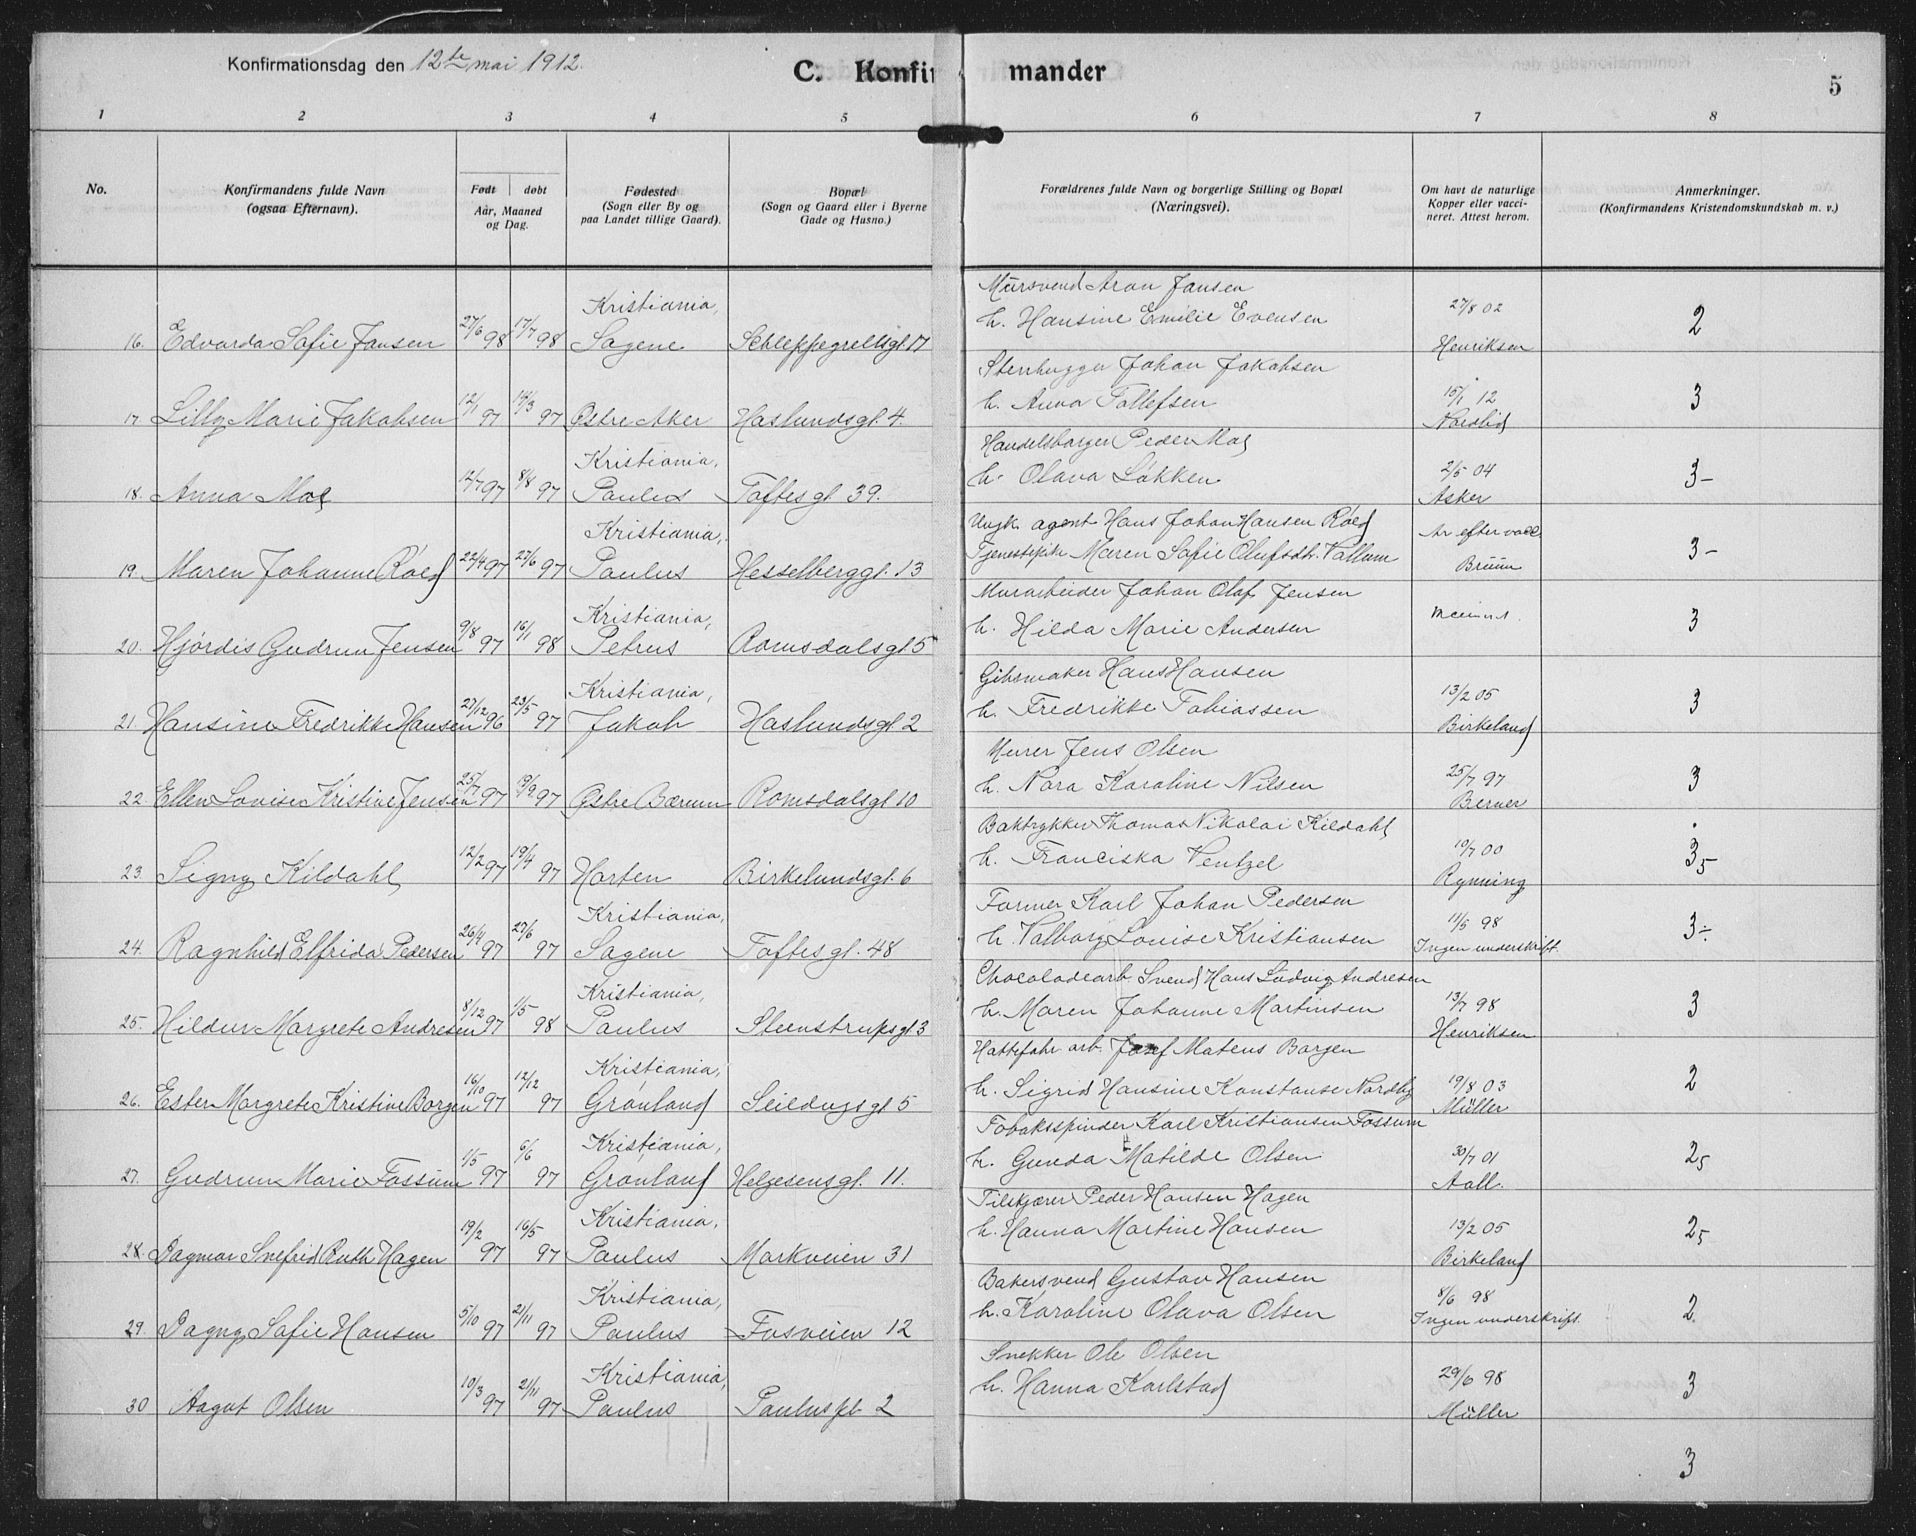 Konfirmationsdag den 12te mai 1912.
C. Konfirmander
5
1 2 3 4 5 6 7 8
No.
Konfirmandens fulde Navn
(ogsaa Efternavn).
Født døbt
Aar, Maaned
og Dag.
Fødested
(Sogn eller By og
paa Landet tillige Gaard).
Bopæl
(Sogn og Gaard eller i Byerne
Gade og Husno.)
Forældrenes fulde Navn og borgerlige Stilling og Bopæl
(Næringsvei).
Om havt de naturlige
Kopper eller vacci-
neret. Attest herom.
Anmerkninger.
(Konfirmandens Kristendomskundskab m. v.)
Mursvend Aron Jansen
Kristiania, h. Hansine Emilie Evensen 27/8 02 2
16. Edvarda Sofie Jansen 27/6 98 17/7 98 Sagene Schleppegrellsgt. 17 Henriksen
Stenhugger Johan Jakobsen
h. Anna Tollefsen 15/1 12 3
17 Lilly Marie Jakobsen 12/1 97 14/3 97 Østre Aker Haslundsgt. 4. Nordlid
Handelsborger Peder Moe
Kristiania, h. Olava Løkken 2/5 04 3-
18. Anna Moe 12/7 97 8/8 97 Paulus Toftesgt. 39. Asker
Ungk. agent Hans Johan Hansen Röed Ar efter vacc.
Kristiania, Tjenestepike Maren Sofie Olufsdtr. Vallum 3-
19. Maren Johanne Röed 22/4 97 27/6 97 Paulus Hesselberggt. 13 Bruun
Murarbeider Johan Olaf Jensen
Kristiania, h. Hilda Marie Andersen 3
20. Hjördis Gudrun Jensen 9/8 97 16/1 98 Petrus Romsdalsgt. 5
Gibsmaker Hans Hansen
Kristiania, h. Fredrikke Tobiassen 13/2 05 3
21. Hansine Fredrikke Hansen 27/12 96 23/5 97 Jakob Haslundsgt. 2 Birkeland
Murer Jens Olsen
h. Nora Karoline Nilsen 25/7 97 3
22. Ellen Lovise Kristine Jensen 25/7 97 19/9 97 Østre Bærum Romsdalsgt. 10 Berner
Boktrykker Thomas Nikolai Kildahl
h. Franciska Ventzel 10/7 00 3,5
23. Signy Kildahl 12/2 97 19/4 97 Horten Birkelundsgt. 6 Rynning
Former Karl Johan Pedersen
Kristiania, h. Valborg Louise Kristiansen 11/5 98 3÷
24. Ragnhild Elfrida Pedersen 26/4 97 27/6 97 Sagene Toftesgt. 48 Ingen underskrift
Chocoladearb. Svend Hans Ludvig Andresen
Kristiania, h. Maren Johanne Martinsen 13/7 98 3
25. Hildur Margrete Andresen 8/12 97 1/5 98 Paulus Steenstrupsgt. 3 Henriksen
Hattefabr. arb. Josef Mateus Borgen
Kristiania, h. Sigrid Hansine Konstanse Nordby 19/8 03 2
26. Ester Margrete Kristine Borgen 16/10 97 12/12 97 Grønland Seildugsgt. 5 Müller
Tobaksspinder Karl Kristiansen Fossum
Kristiania, h. Gunda Matilde Olsen 30/7 01 2,5
27. Gudrun Marie Fossum 1/5 97 6/6 97 Grønland Helgesensgt. 11. Aall.
Tilskjærer Peder Hansen Hagen
Kristiania, h. Hanna Martine Hansen 13/2 05 2,5
28. Dagmar Snefrid Ruth Hagen 19/2 97 16/5 97 Paulus Markveien 31 Birkeland
Bakersvend Gustav Hansen
Kristiania, h. Karoline Olava Olsen 8/6 98 2.
29. Dagny Sofie Hansen 5/10 97 21/11 97 Paulus Fosveien 12 Ingen underskrift.
Snekker Ole Olsen
Kristiania, h. Hanna Karlstad 29/6 98 3
30 Aagot Olsen 10/3 97 21/11 97 Paulus Pauluspl. 2 Müller
3